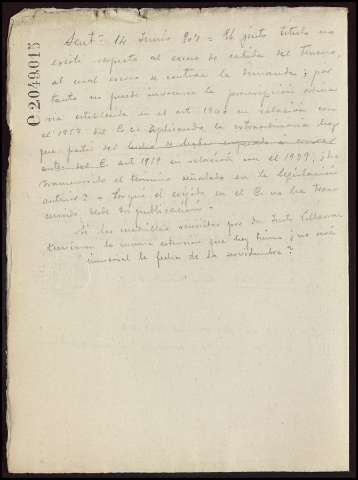 C 2049015
Sentª 14 Junio 904 = El justo título no
existe respecto al exceso de cabida del terreno,
al cual exceso se contrae la demanda; por
tanto no puede invocarse la prescripción ordina
ria establecida en el art. 1940 en relación con
el 1957 del C. c. Aplicando la extraordinaria hay
que partir del
antes del C. art 1919 en relación con el 1939, ¿ha
transcurrido el término señalado en la legislación
anterior? o porque el exigido en el C. no ha trans
currido desde su publicación.
Si los medidas por Dn Justo Villanue
tuvieron la misma extensión que hoy tienen ¿no será
inmemorial la fecha de la servidumbre?